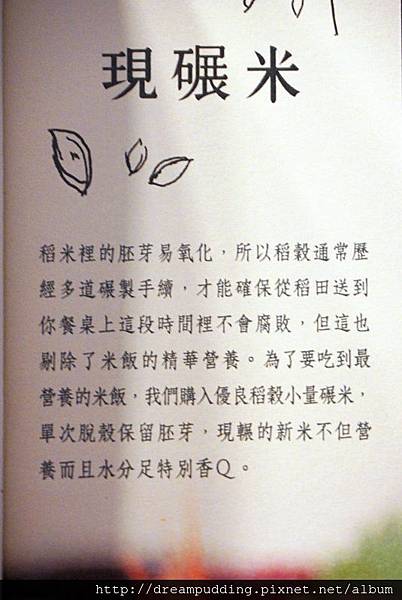 現碾米
稻米裡的胚芽易氧化，所以稻穀通常歷
經多道碾製手續，才能確保從稻田送到
你餐桌上這段時間裡不會腐敗，但這也
剔除了米飯的精華營養。為了要吃到最
營養的米飯，我們購入優良稻穀小量碾米，
單次脫殼保留胚芽，現輾的新米不但營
養而且水分足特別香Q。
http://dreampudding.pixnet.net/album